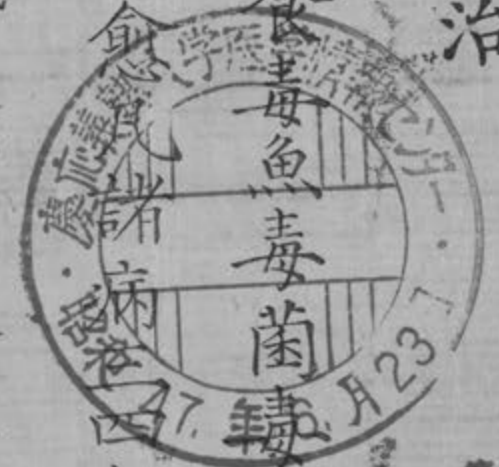 治
食毒魚毒菌毒
俞兒諸病四
慶應義塾大学医学情報センター
47. 月23